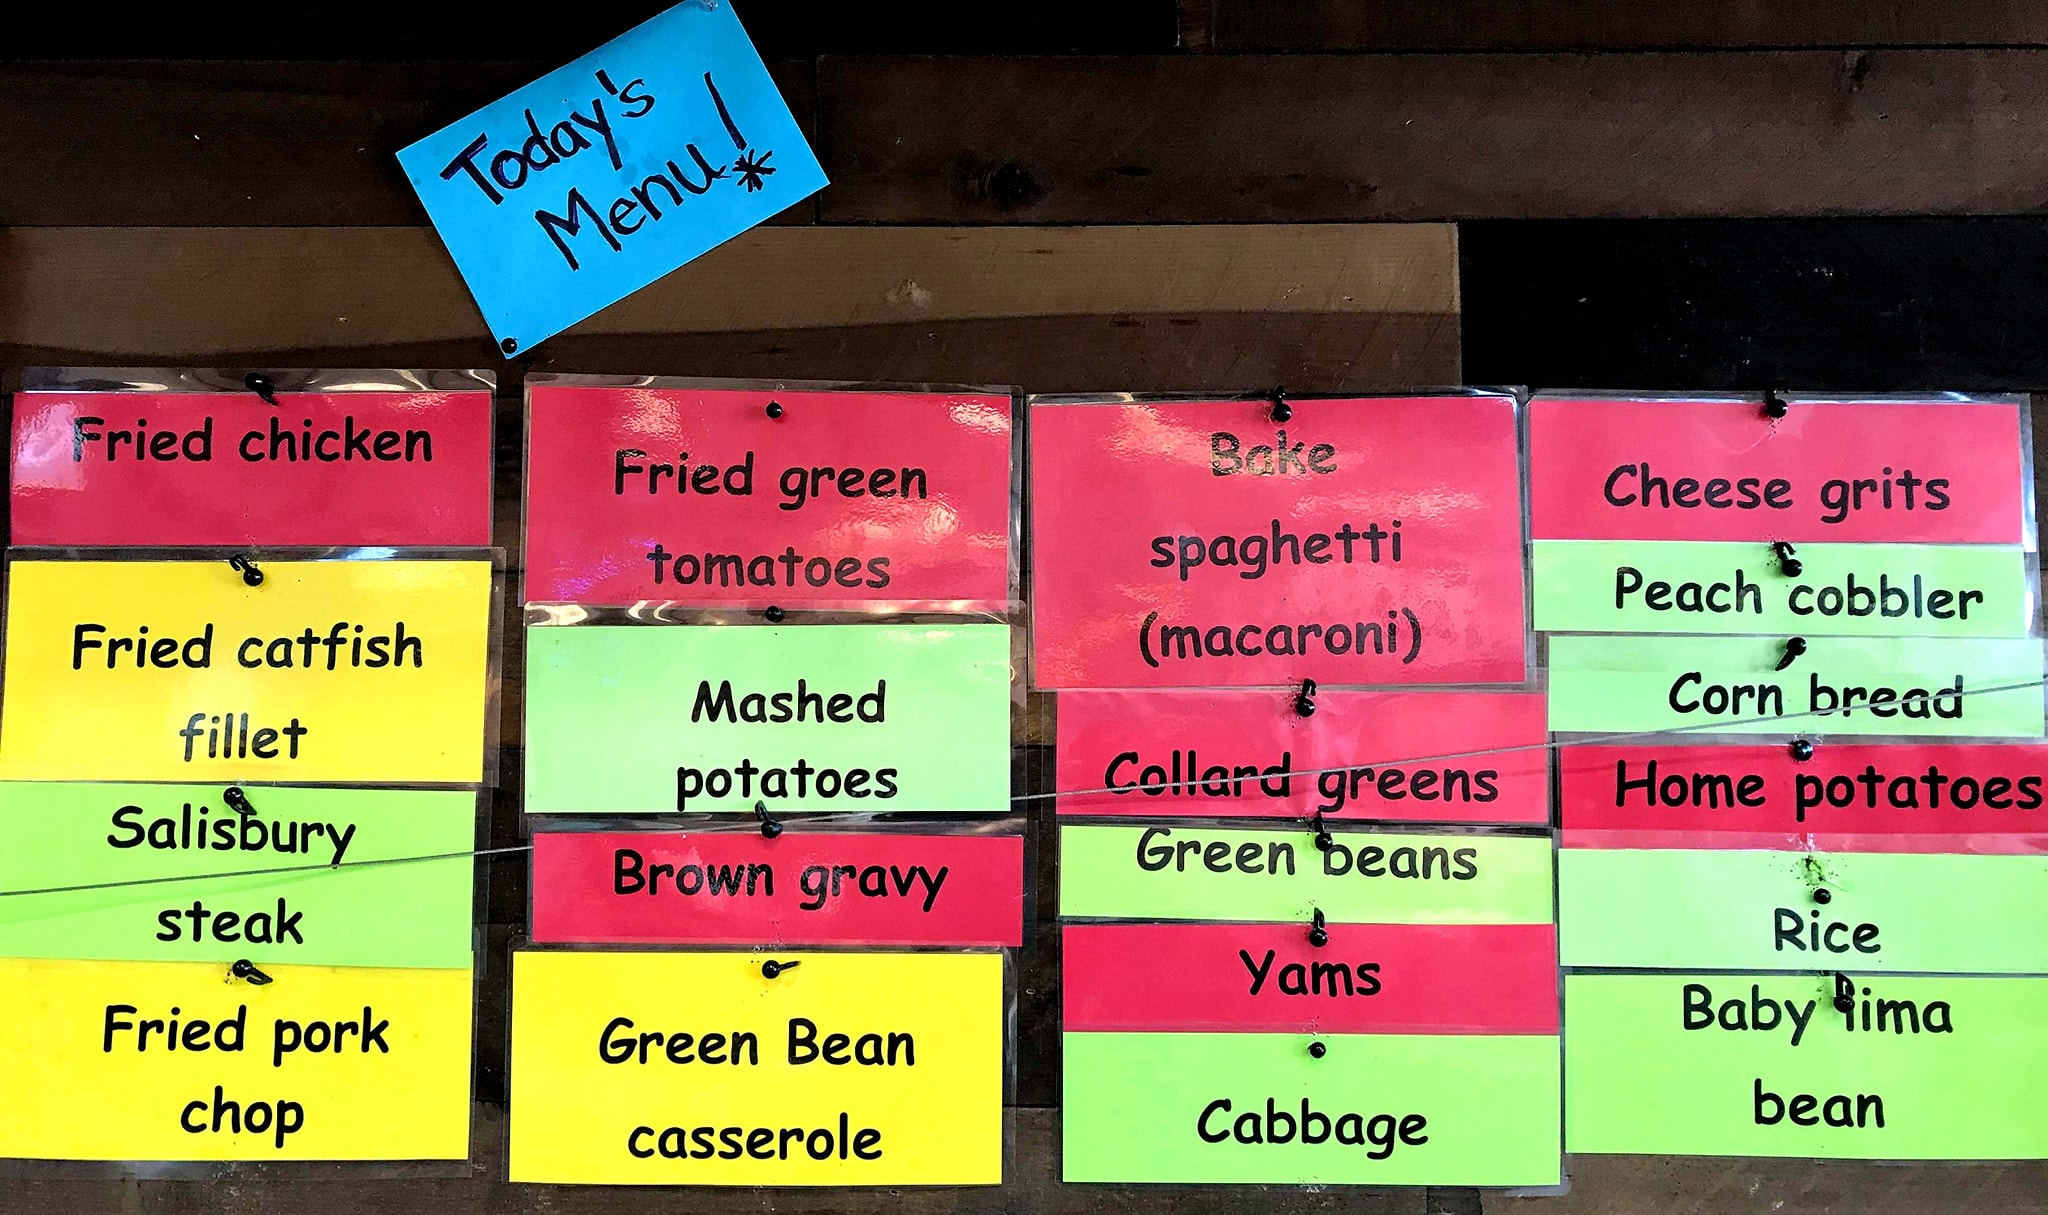 Today's
Menu!
Fried chicken
Fried catfish
fillet
Salisbury
steak
Fried pork
chop
Fried green
tomatoes
Mashed
potatoes
Brown gravy
Green Bean
casserole
Bake
spaghetti
(macaroni)
Collard greens
Green beans
Yams
Cabbage
Cheese grits
Peach cobbler
Corn bread
Home potatoes
Rice
Baby lima
bean